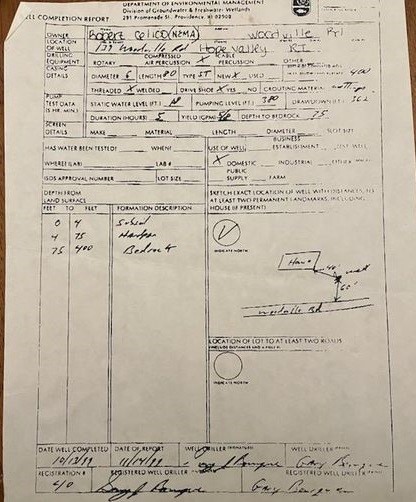 DEPARTMENT OF ENVIRONMENTAL MANAGEMENT
Division of Groundwater & Freshwater Wetlands
291 Promenade St. Providence, RI 02908
WELL COMPLETION REPORT
OWNER Robert Woodville Rd
LOCATION OF WELL 137 Woodville Rd Hope Valley RI
DRILLING EQUIPMENT ROTARY COMPRESSED AIR PERCUSSION X CABLE PERCUSSION OTHER
CASING DETAILS DIAMETER 6 LENGTH 80 TYPE ST NEW X USED
THREADED X WELDED DRIVE SHOE X YES NO GROUTING MATERIAL
PUMP TEST DATA (5 HR. MIN.) STATIC WATER LEVEL (FT.) 18 PUMPING LEVEL (FT.) 380 DRAWDOWN (FT.) 362
DURATION (HOURS) 5 YIELD (GPM) DEPTH TO BEDROCK 75
SCREEN DETAILS MAKE MATERIAL LENGTH DIAMETER SLOT SIZE
HAS WATER BEEN TESTED? WHEN? USE OF WELL BUSINESS ESTABLISHMENT TEST WELL
WHERE (LAB) LAB # X DOMESTIC INDUSTRIAL OTHER
ISDS APPROVAL NUMBER LOT SIZE PUBLIC SUPPLY FARM
DEPTH FROM LAND SURFACE
SKETCH EXACT LOCATION OF WELL WITH DISTANCES TO AT LEAST TWO PERMANENT LANDMARKS, INCLUDING HOUSE (IF PRESENT)
FEET TO FEET FORMATION DESCRIPTION
0 4
4 75 Hardpan
75 400 Bedrock
INDICATE NORTH
House
40'
well
65'
Woodville Rd
LOCATION OF LOT TO AT LEAST TWO ROADS
(INCLUDE DISTANCES AND A POLE #)
INDICATE NORTH
DATE WELL COMPLETED DATE OF REPORT WELL DRILLER (SIGNATURE) WELL DRILLER
REGISTRATION # REGISTERED WELL DRILLER REGISTERED WELL DRILLER